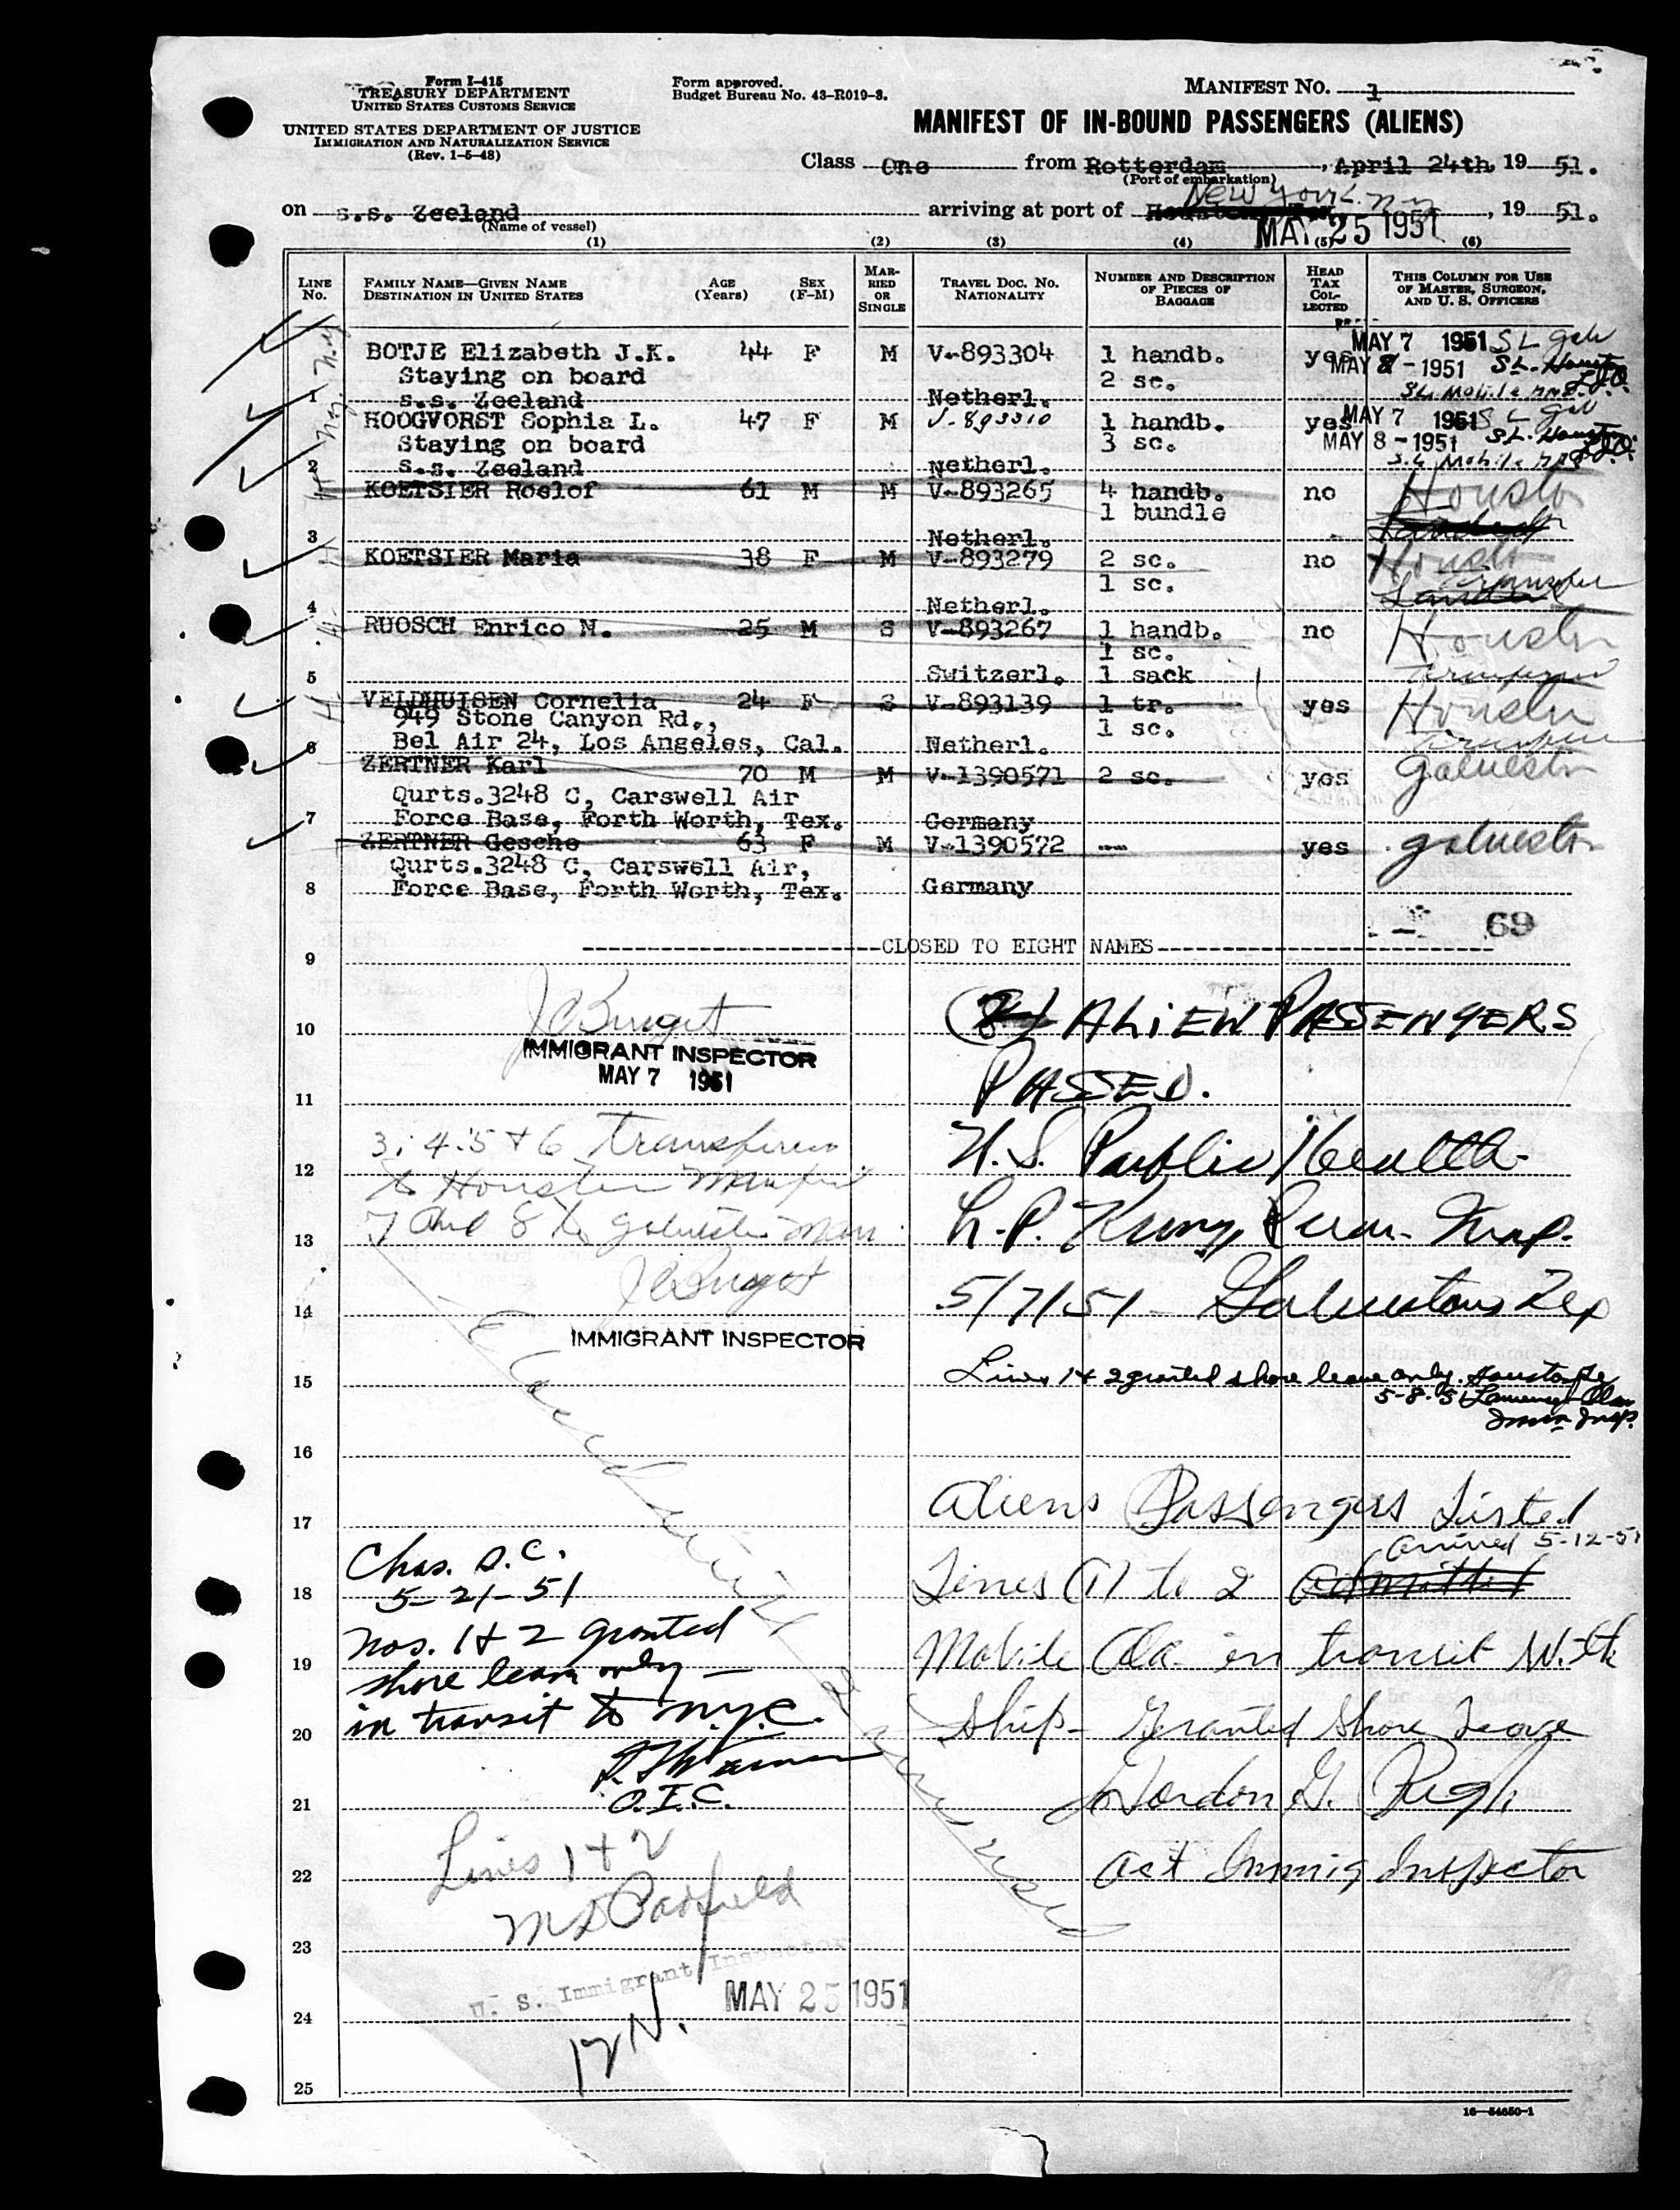 Form I-415
TREASURY DEPARTMENT
UNITED STATES CUSTOMS SERVICE
UNITED STATES DEPARTMENT OF JUSTICE
IMMIGRATION AND NATURALIZATION SERVICE
(Rev. 1-5-48)
Form approved.
Budget Bureau No. 43-R019-3.
MANIFEST NO. 1
MANIFEST OF IN-BOUND PASSENGERS (ALIENS)
Class One from Rotterdam, April 24th, 19 51.
(Port of embarkation)
New York. N.Y
on s.s. Zeeland arriving at port of , 19 51.
(Name of vessel)
MAY 25 1951
(1) (2) (3) (4) (5) (6)
LINE No. FAMILY NAME—GIVEN NAME DESTINATION IN UNITED STATES AGE (Years) SEX (F-M) MARRIED OR SINGLE TRAVEL DOC. NO. NATIONALITY NUMBER AND DESCRIPTION OF PIECES OF BAGGAGE HEAD TAX COLLECTED THIS COLUMN FOR USE OF MASTER, SURGEON, AND U. S. OFFICERS
BOTJE Elizabeth J.K. 44 F M V-893304 1 handb. yes MAY 7 1951 S L Galv
Staying on board 2 sc. MAY 8 - 1951 SL. Houston
1 s.s. Zeeland Netherl. SL Mobile
HOOGVORST Sophia L. 47 F M V-893310 1 handb. yes MAY 7 1951 S L Gal
Staying on board 3 sc. MAY 8 - 1951 SL. Houston
2 s.s. Zeeland Netherl. S.L Mobile
KOETSIER Roelof 61 M M V-893265 4 handb. no Houston
1 bundle
3 Netherl.
KOETSIER Maria 38 F M V-893279 2 sc. no Houston
1 sc. Transfer
4 Netherl.
RUOSCH Enrico M. 25 M S V-893267 1 handb. no Houston
1 sc.
5 Switzerl. 1 sack
VELDHUISEN Cornelia 24 F S V-893139 1 tr. yes Houston
949 Stone Canyon Rd., 1 sc.
6 Bel Air 24, Los Angeles, Cal. Netherl.
ZERTNER Karl 70 M M V-1390571 2 sc. yes Galveston
Qurts.3248 C, Carswell Air
7 Force Base, Forth Worth, Tex. Germany
ZERTNER Gesche 63 F M V-1390572 -- yes Galveston
Qurts.3248 C, Carswell Air,
8 Force Base, Forth Worth, Tex. Germany
69
CLOSED TO EIGHT NAMES
9
10
IMMIGRANT INSPECTOR
MAY 7 1951
ALIEN PASSENGERS
PASSED.
11
U. S. Public Health
5/7/51 - Galveston Tex
3, 4, 5 & 6 transferred
12
to Houston Manifest
7 and 8 to Galveston Man
13
14
IMMIGRANT INSPECTOR
Lines 1 & 2 granted shore leave only. Houston Tex
5-8-51
Immn Insp.
15
16
Aliens Passengers Listed
17
arrived 5-12-51
Lines (1) to 2 admitted
Mobile Ala in transit with
Ship - Granted Shore Leave
Gordon G. Pugh
Act Immig Inspector
Chas. S.C.
18
5-21-51
Nos. 1 & 2 granted
19
shore leave only -
in transit to N.Y.C.
20
O.I.C.
21
Lines 1 & 2
22
23
U. S. Immigrant Inspector
MAY 25 1951
24
25
16-54650-1